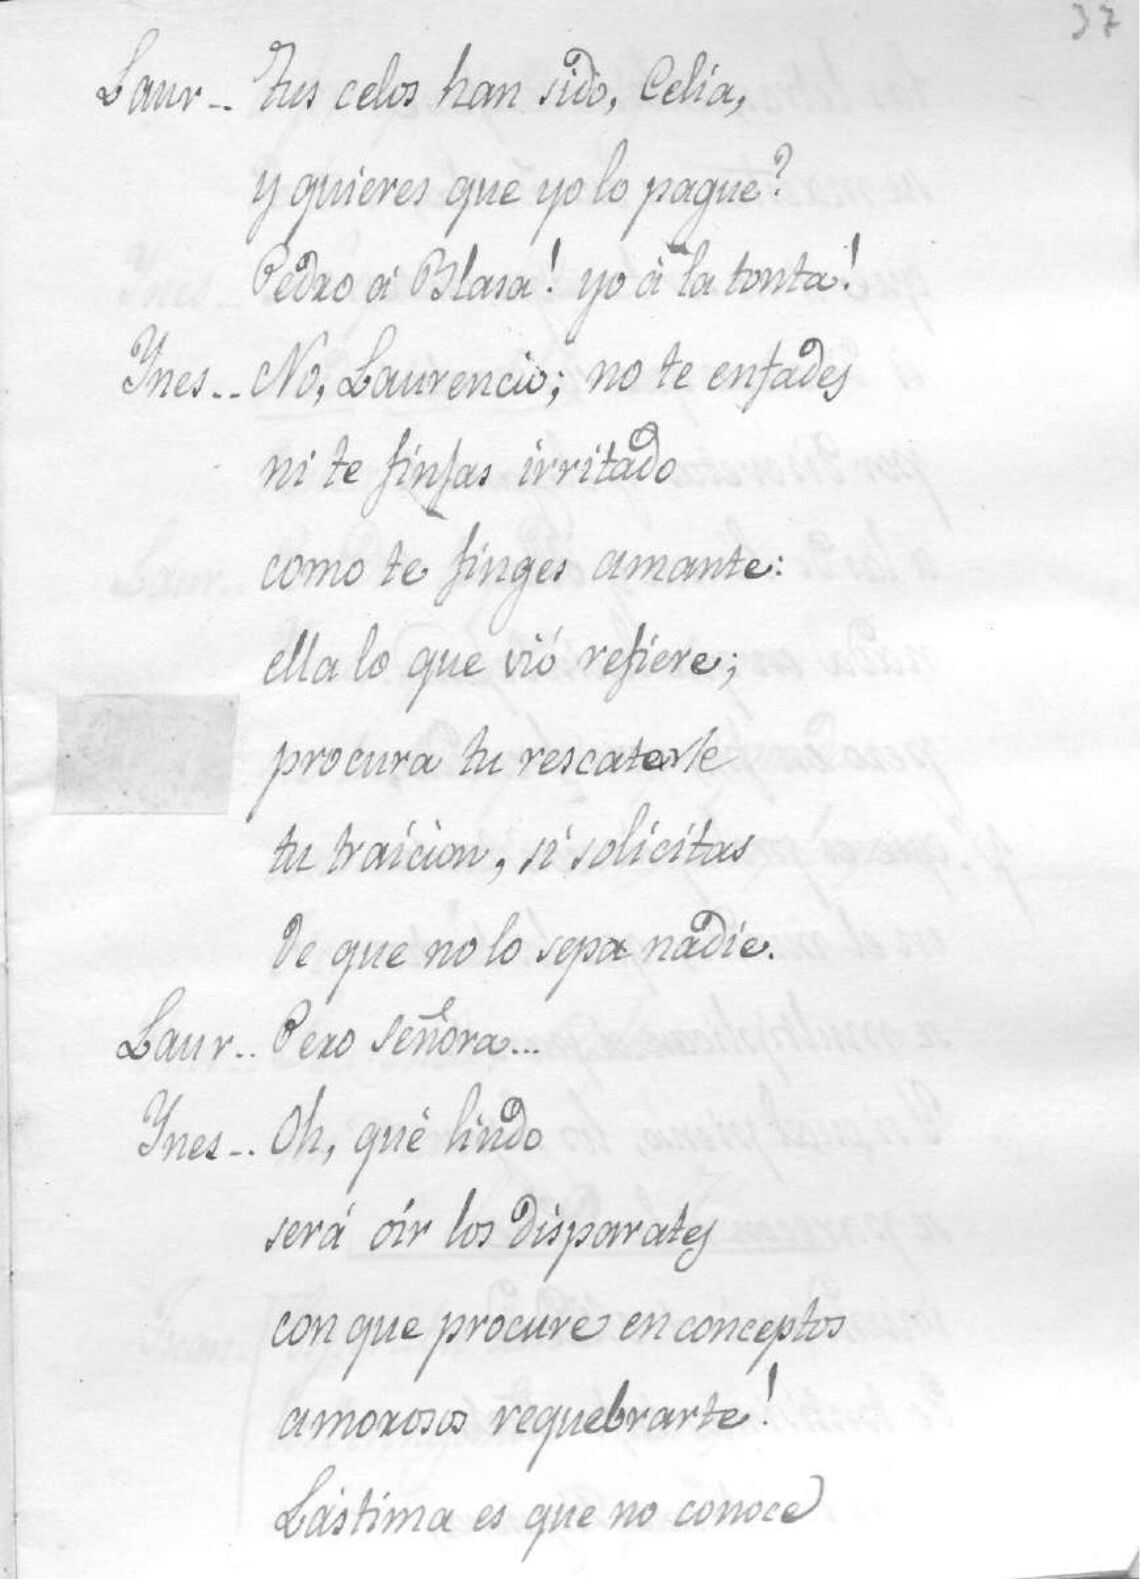 37
Laur.. Tus celos han sido, Celia,
y quieres que yo lo pague?
Pedro á Blasa! yo á la tonta!
Ynes.. No, Laurencio; no te enfades
ni te finjas irritado
como te finges amante:
ella lo que vió refiere;
procura tu rescatarle
tu traicion, si solicitas
de que no lo sepa nadie.
Laur.. Pero señora...
Ynes.. Oh, qué lindo
será oír los disparates
con que procure en conceptos
amorosos requebrarte!
Lástima es que no conoce